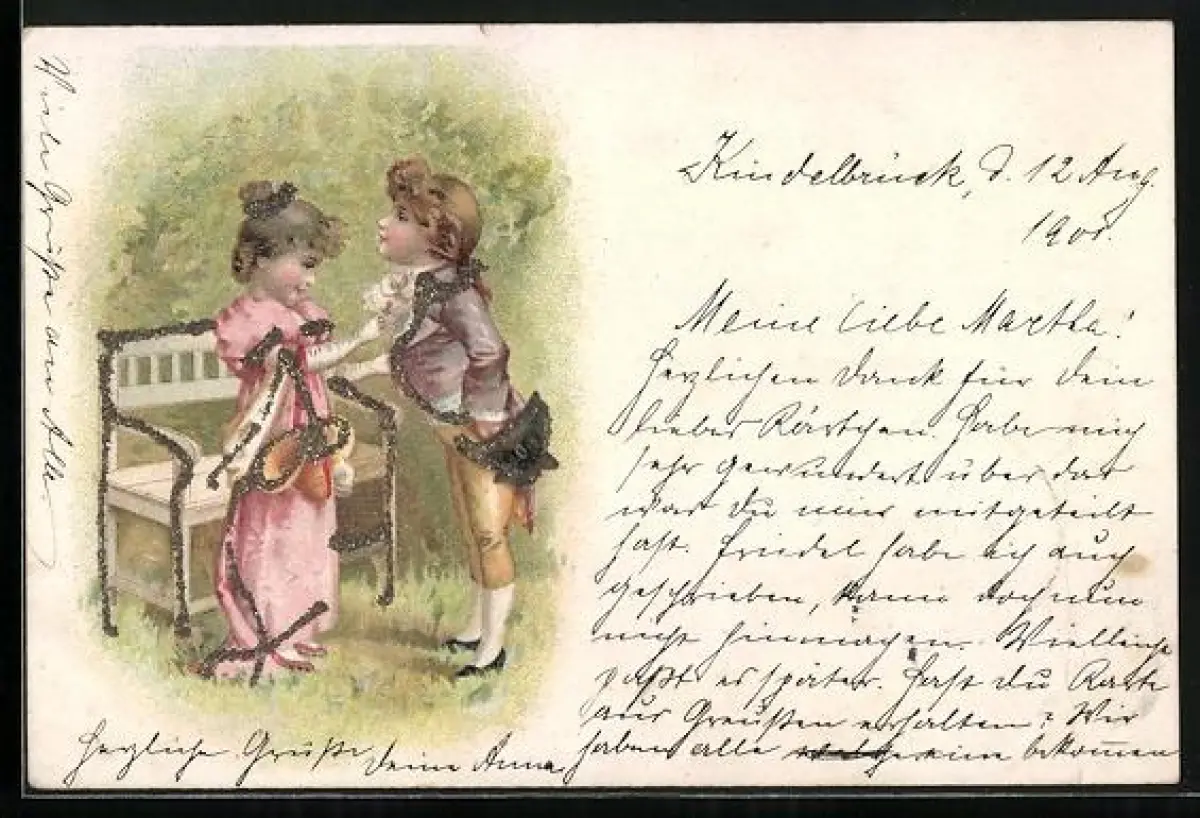 Kindelbrück, d. 12 Aug.
1901.
Meine liebe Martha!
Herzlichen Dank für Dein
liebes Kärtchen. Habe mich
sehr gewundert über das
was Du mir mitgeteilt
hast. Friedel habe ich auch
geschrieben, kann doch nun
nicht hinmachen. Vielleicht
paßt es später. Hast Du Karte
aus Greußen erhalten? Wir
haben alle eine bekommen
Herzliche Grüße Deine Anna
Viele Grüße an Alle